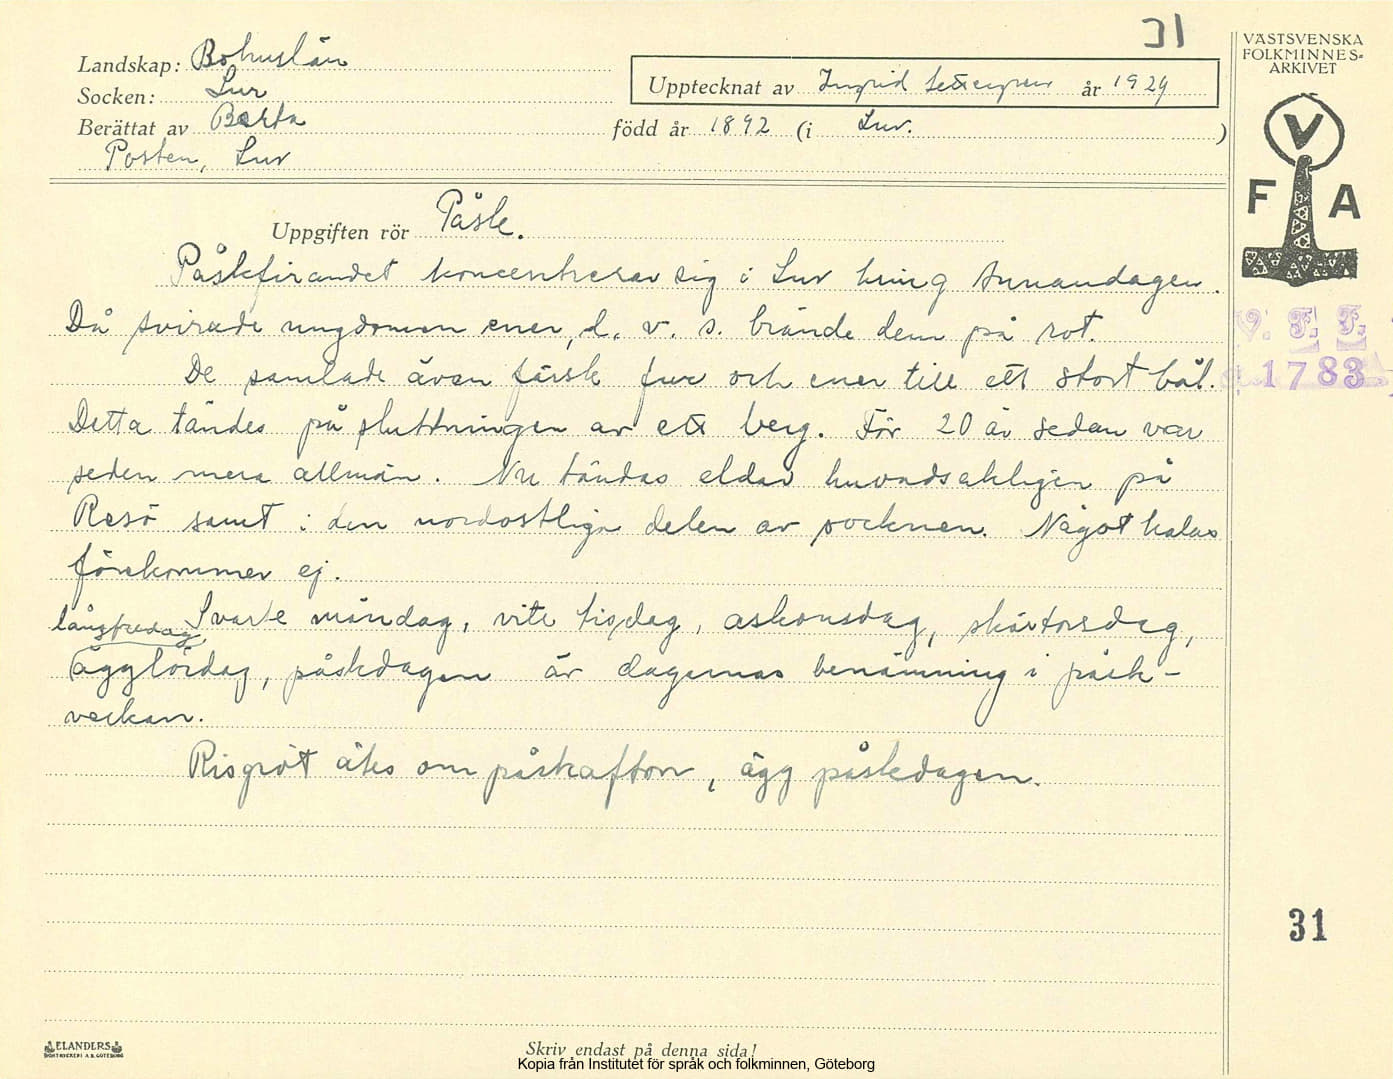 31
VÄSTSVENSKA
FOLKMINNES=
ARKIVET
V
F A
Landskap: Bohuslän
Socken: Lur
Upptecknat av Ingrid år 1929
Berättat av Berta
född år 1892 (i Lur. )
Posten, Lur
Uppgiften rör Påsk.
Påskfirandet koncentrerar sig i Lur kring Annandagen.
Då svirade ungdomen ener, d. v. s. brände dem på rot.
De samlade även färsk fur och ener till ett stort bål.
Detta tändes på sluttningen av ett berg. För 20 år sedan var
seden mera allmän. Nu tändas eldar huvudsakligen på
Resö samt i den nordostliga delen av socknen. Något kalas
förekommer ej.
Svarte måndag, vite tisdag, askonsdag, skärtorsdag,
långfredag
ägglördag, påskdagen är dagarnas benämning i påsk-
veckan.
Risgröt ätes om påskafton, ägg påskdagen.
V. F. F.
1783
31
ELANDERS
BOKTRYCKERI A.B. GÖTEBORG
Skriv endast på denna sida!
Kopia från Institutet för språk och folkminnen, Göteborg